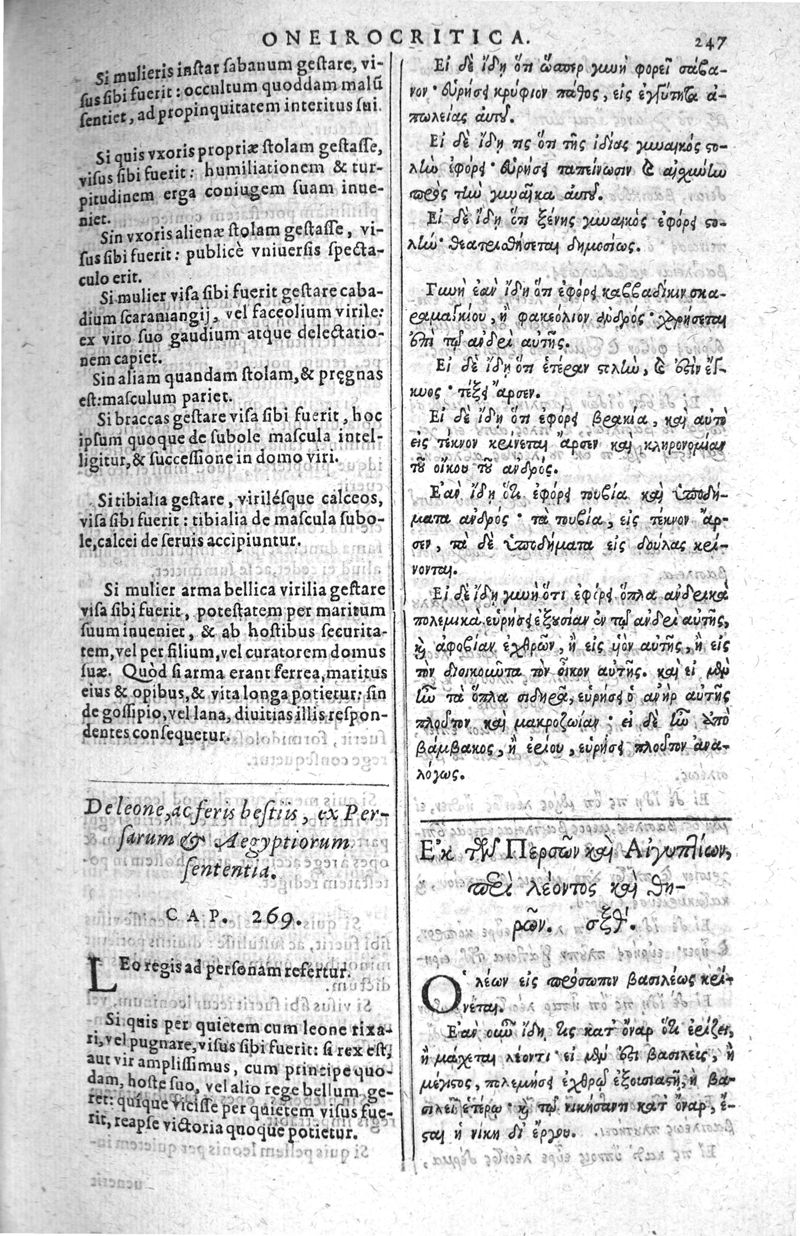 ONEIROCRITICA. 247
Si mulieris instar sabanum gestare, vi-
sus sibi fuerit: occultum quoddam malũ
sentiet, ad propinquitatem interitus sui.
Si quis vxoris propriæ stolam gestasse,
visus sibi fuerit: humiliationem & tur-
pitudinem erga coniugem suam inue-
niet.
Sin vxoris alienæ stolam gestasse, vi-
sus sibi fuerit: publicè vniuersis specta-
culo erit.
Si mulier visa sibi fuerit gestare caba-
dium scaramangij, vel faceolium virile:
ex viro suo gaudium atque delectatio-
nem capiet.
Sin aliam quandam stolam, & pręgnas
est: masculum pariet.
Si braccas gestare visa sibi fuerit, hoc
ipsum quoque de subole mascula intel-
ligitur, & successione in domo viri.
Si tibialia gestare, virilésque calceos,
visa sibi fuerit: tibialia de mascula subo-
le, calcei de seruis accipiuntur.
Si mulier arma bellica virilia gestare
visa sibi fuerit, potestatem per maritum
suum inueniet, & ab hostibus securita-
tem, vel per filium, vel curatorem domus
suæ. Quòd si arma erant ferrea, maritus
eius & opibus, & vita longa potietur: sin
de gossipio, vel lana, diuitias illis respon-
dentes consequetur.
De leone, ac feris bestiis, ex Per-
sarum & Aegyptiorum
sententia.
CAP. 269.
LEo regis ad personam refertur.
Si quis per quietem cum leone rixa-
ri, vel pugnare, visus sibi fuerit: si rex est,
aut vir amplissimus, cum principe quo-
dam, hoste suo, vel alio rege bellum ge-
ret: quisque vicisse per quietem visus fue-
rit, reapse victoria quoque potietur.
Εἰ δὲ ἴδῃ ὅτι ὥσπερ γυνὴ φορεῖ σάβα-
νον· εὑρήσει κρύφιον πάθος, εἰς ἐγγύτητα ἀ-
πωλείας αὐτοῦ.
Εἰ δὲ ἴδῃ τις ὅτι τῆς ἰδίας γυναικὸς στο-
λὴν ἐφόρει· εὑρήσει ταπείνωσιν καὶ αἰσχύνην
πρὸς τὴν γυναῖκα αὐτοῦ.
Εἰ δὲ ἴδῃ ὅτι ξένης γυναικὸς ἐφόρει στο-
λήν· θεατρισθήσεται δημοσίως.
Γυνὴ ἐὰν ἴδῃ ὅτι ἐφόρει καββάδικιν σκα-
ραμαγκίου, ἢ φακεόλιον ἀνδρός· χαρήσεται
ἐπὶ τῷ ἀνδρὶ αὐτῆς.
Εἰ δὲ ἴδῃ ὅτι ἑτέραν στολὴν, καὶ ἐστὶν ἔγ-
κυος· τέξει ἄρσεν.
Εἰ δὲ ἴδῃ ὅτι ἐφόρει βρακία, καὶ αὐτὸ
εἰς τέκνον κρίνεται ἄρσεν καὶ κληρονομίαν
τοῦ οἴκου τοῦ ἀνδρός.
Ἐὰν ἴδῃ ὅτι ἐφόρει τουβία καὶ ὑποδή-
ματα ἀνδρός· τὰ τουβία, εἰς τέκνον ἄρ-
σεν, τὰ δὲ ὑποδήματα εἰς δούλας κρί-
νονται.
Εἰ δὲ ἴδῃ γυνὴ ὅτι ἐφόρει ὅπλα ἀνδρικὰ
πολεμικὰ, εὑρήσει ἐξουσίαν ἐν τῷ ἀνδρὶ αὐτῆς,
καὶ ἀφοβίαν ἐχθρῶν, ἢ εἰς υἱὸν αὐτῆς, ἢ εἰς
τὸν διοικοῦντα τὸν οἶκον αὐτῆς. καὶ εἰ μὲν
ἦν τὰ ὅπλα σιδηρᾶ, εὑρήσει ὁ ἀνὴρ αὐτῆς
πλοῦτον καὶ μακροζωίαν· εἰ δὲ ἦν ἀπὸ
βάμβακος, ἢ ἐρίου, εὑρήσει πλοῦτον ἀνα-
λόγως.
Ἐκ τῶν Περσῶν καὶ Αἰγυπτίων,
περὶ λέοντος καὶ θη-
ρῶν. σξθʹ.
Ὁ λέων εἰς πρόσωπον βασιλέως κρί-
νεται.
Ἐὰν οὖν ἴδῃ τις κατ᾽ ὄναρ ὅτι ἐρίζει,
ἢ μάχεται λέοντι· εἰ μὲν ἐστι βασιλεὺς, ἢ
μέγιστος, πολεμήσει ἐχθρῷ ἐξουσιαστῇ, ἢ βα-
σιλεῖ ἑτέρῳ· καὶ τῷ νικήσαντι κατ᾽ ὄναρ, ἔ-
σται ἡ νίκη δι᾽ ἔργου.